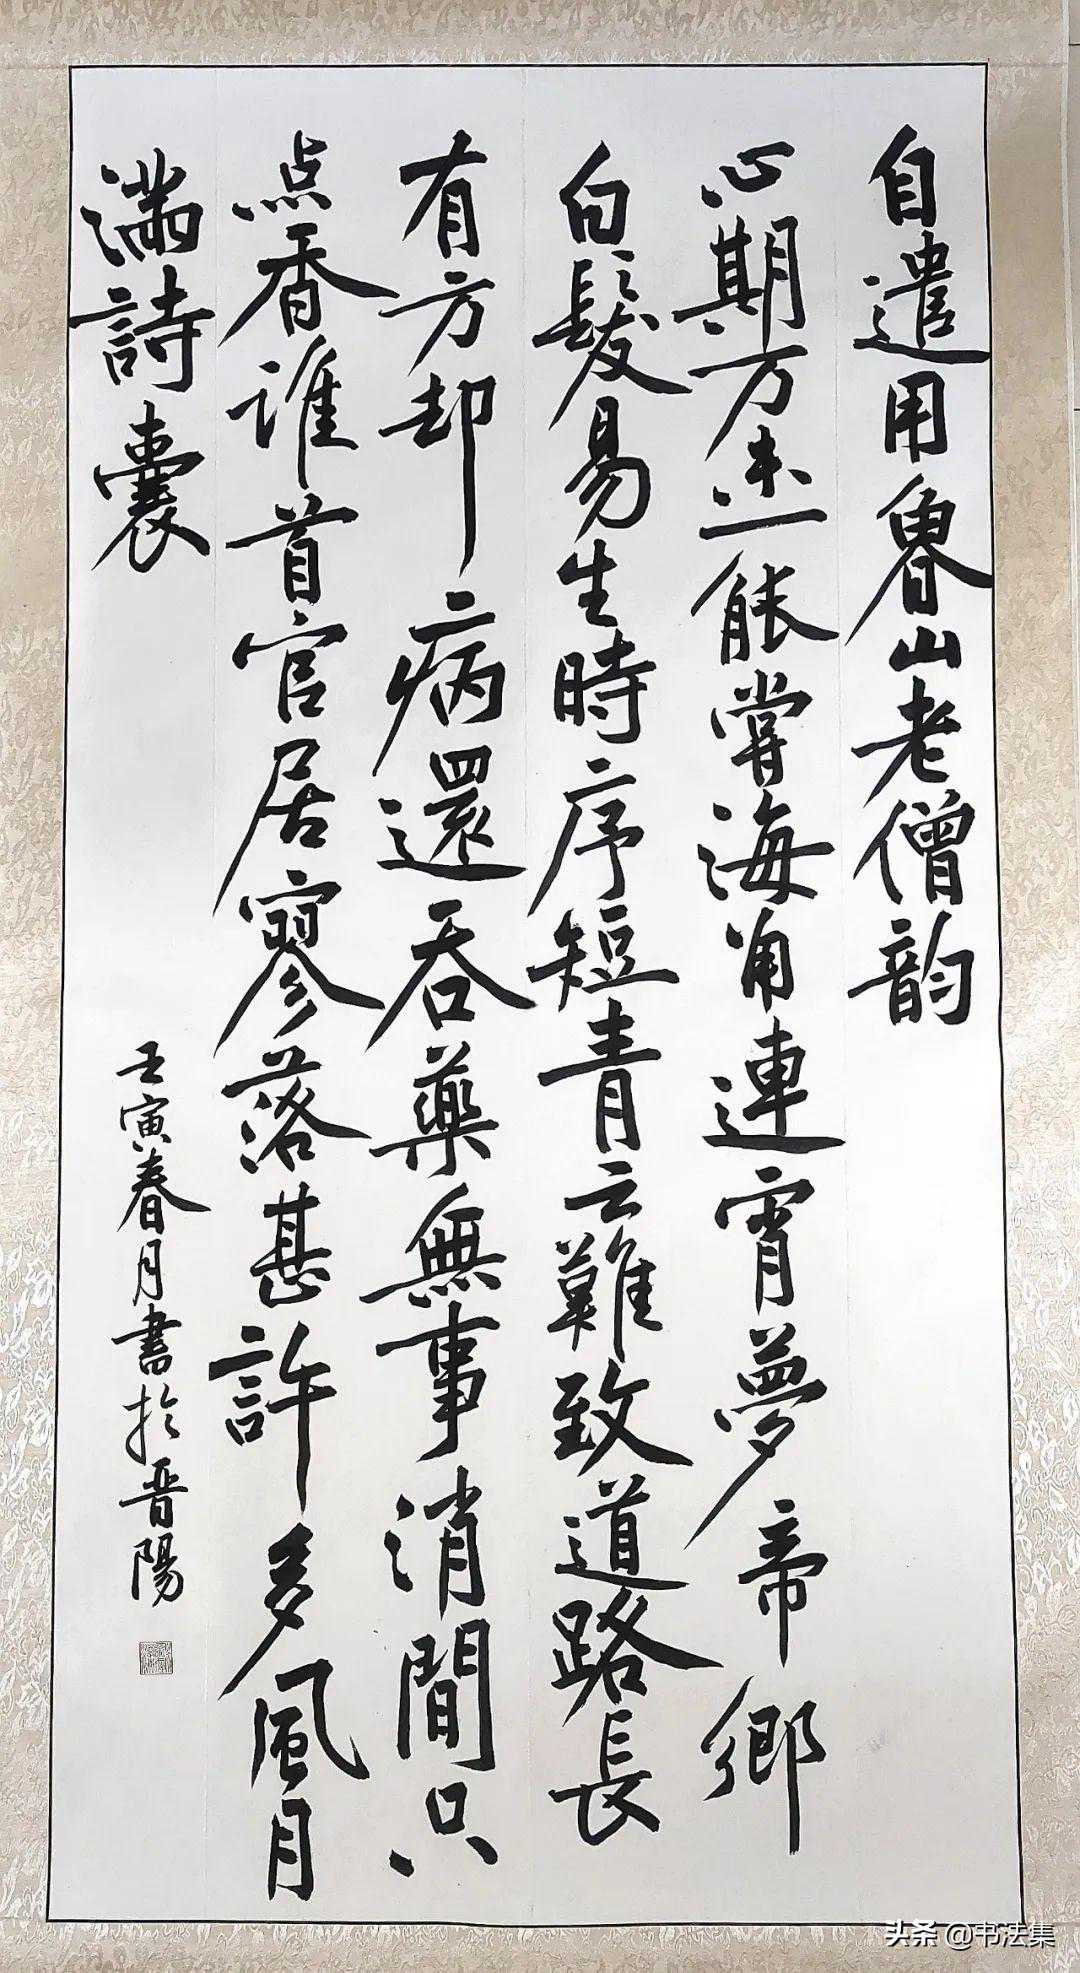 自遣用魯山老僧韵
心期万未一能嘗海角連霄夢帝鄉
白髮易生時序短青云難致道路長
有方却病還吞藥無事消間只
点香谁首官居寥落甚許多風月
滿詩囊
壬寅春月書於晋陽
头条 @书法集